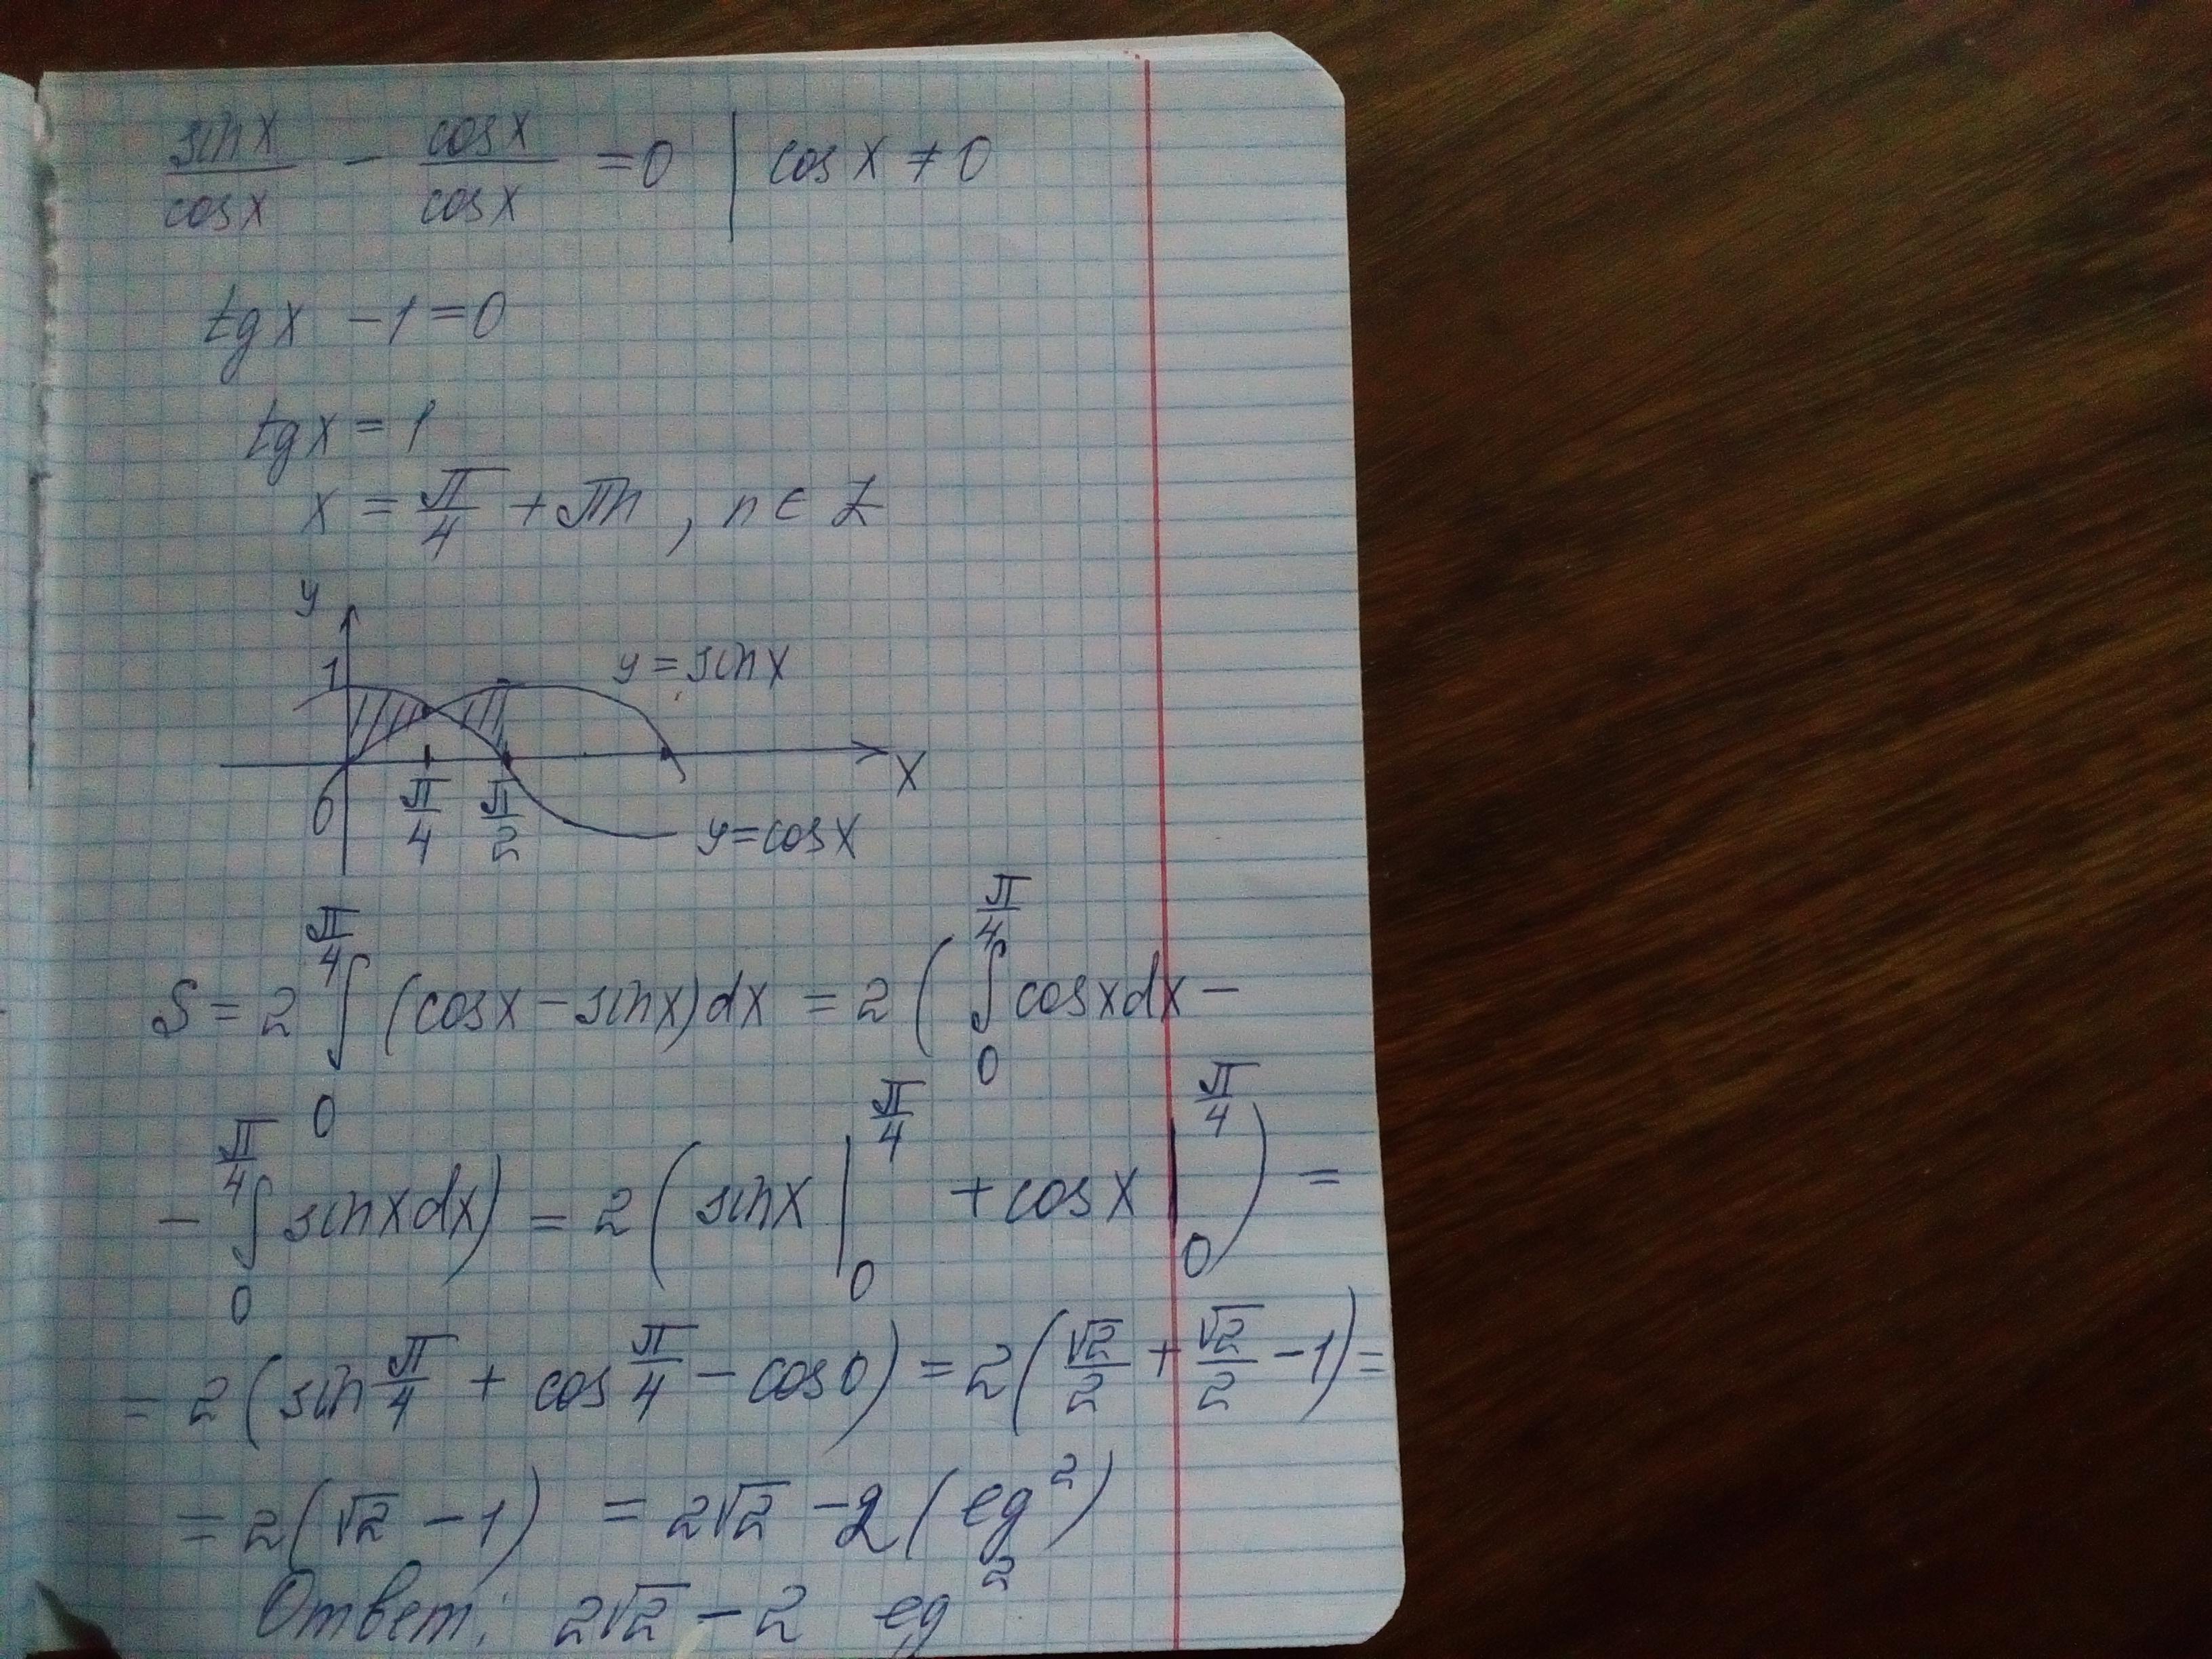 sinx/cosx - cosx/cosx = 0 | cosx ≠ 0
tgx - 1 = 0
tgx = 1
x = π/4 + πn, n ∈ Z
y
1
y = sinx
x
0 π/4 π/2
y = cosx
S = 2 ∫₀^(π/4) (cosx - sinx)dx = 2( ∫₀^(π/4) cosxdx -
- ∫₀^(π/4) sinxdx) = 2( sinx |₀^(π/4) + cosx |₀^(π/4) ) =
= 2( sin π/4 + cos π/4 - cos0) = 2( √2/2 + √2/2 - 1) =
= 2(√2 - 1) = 2√2 - 2 (ед²)
Ответ: 2√2 - 2 ед²